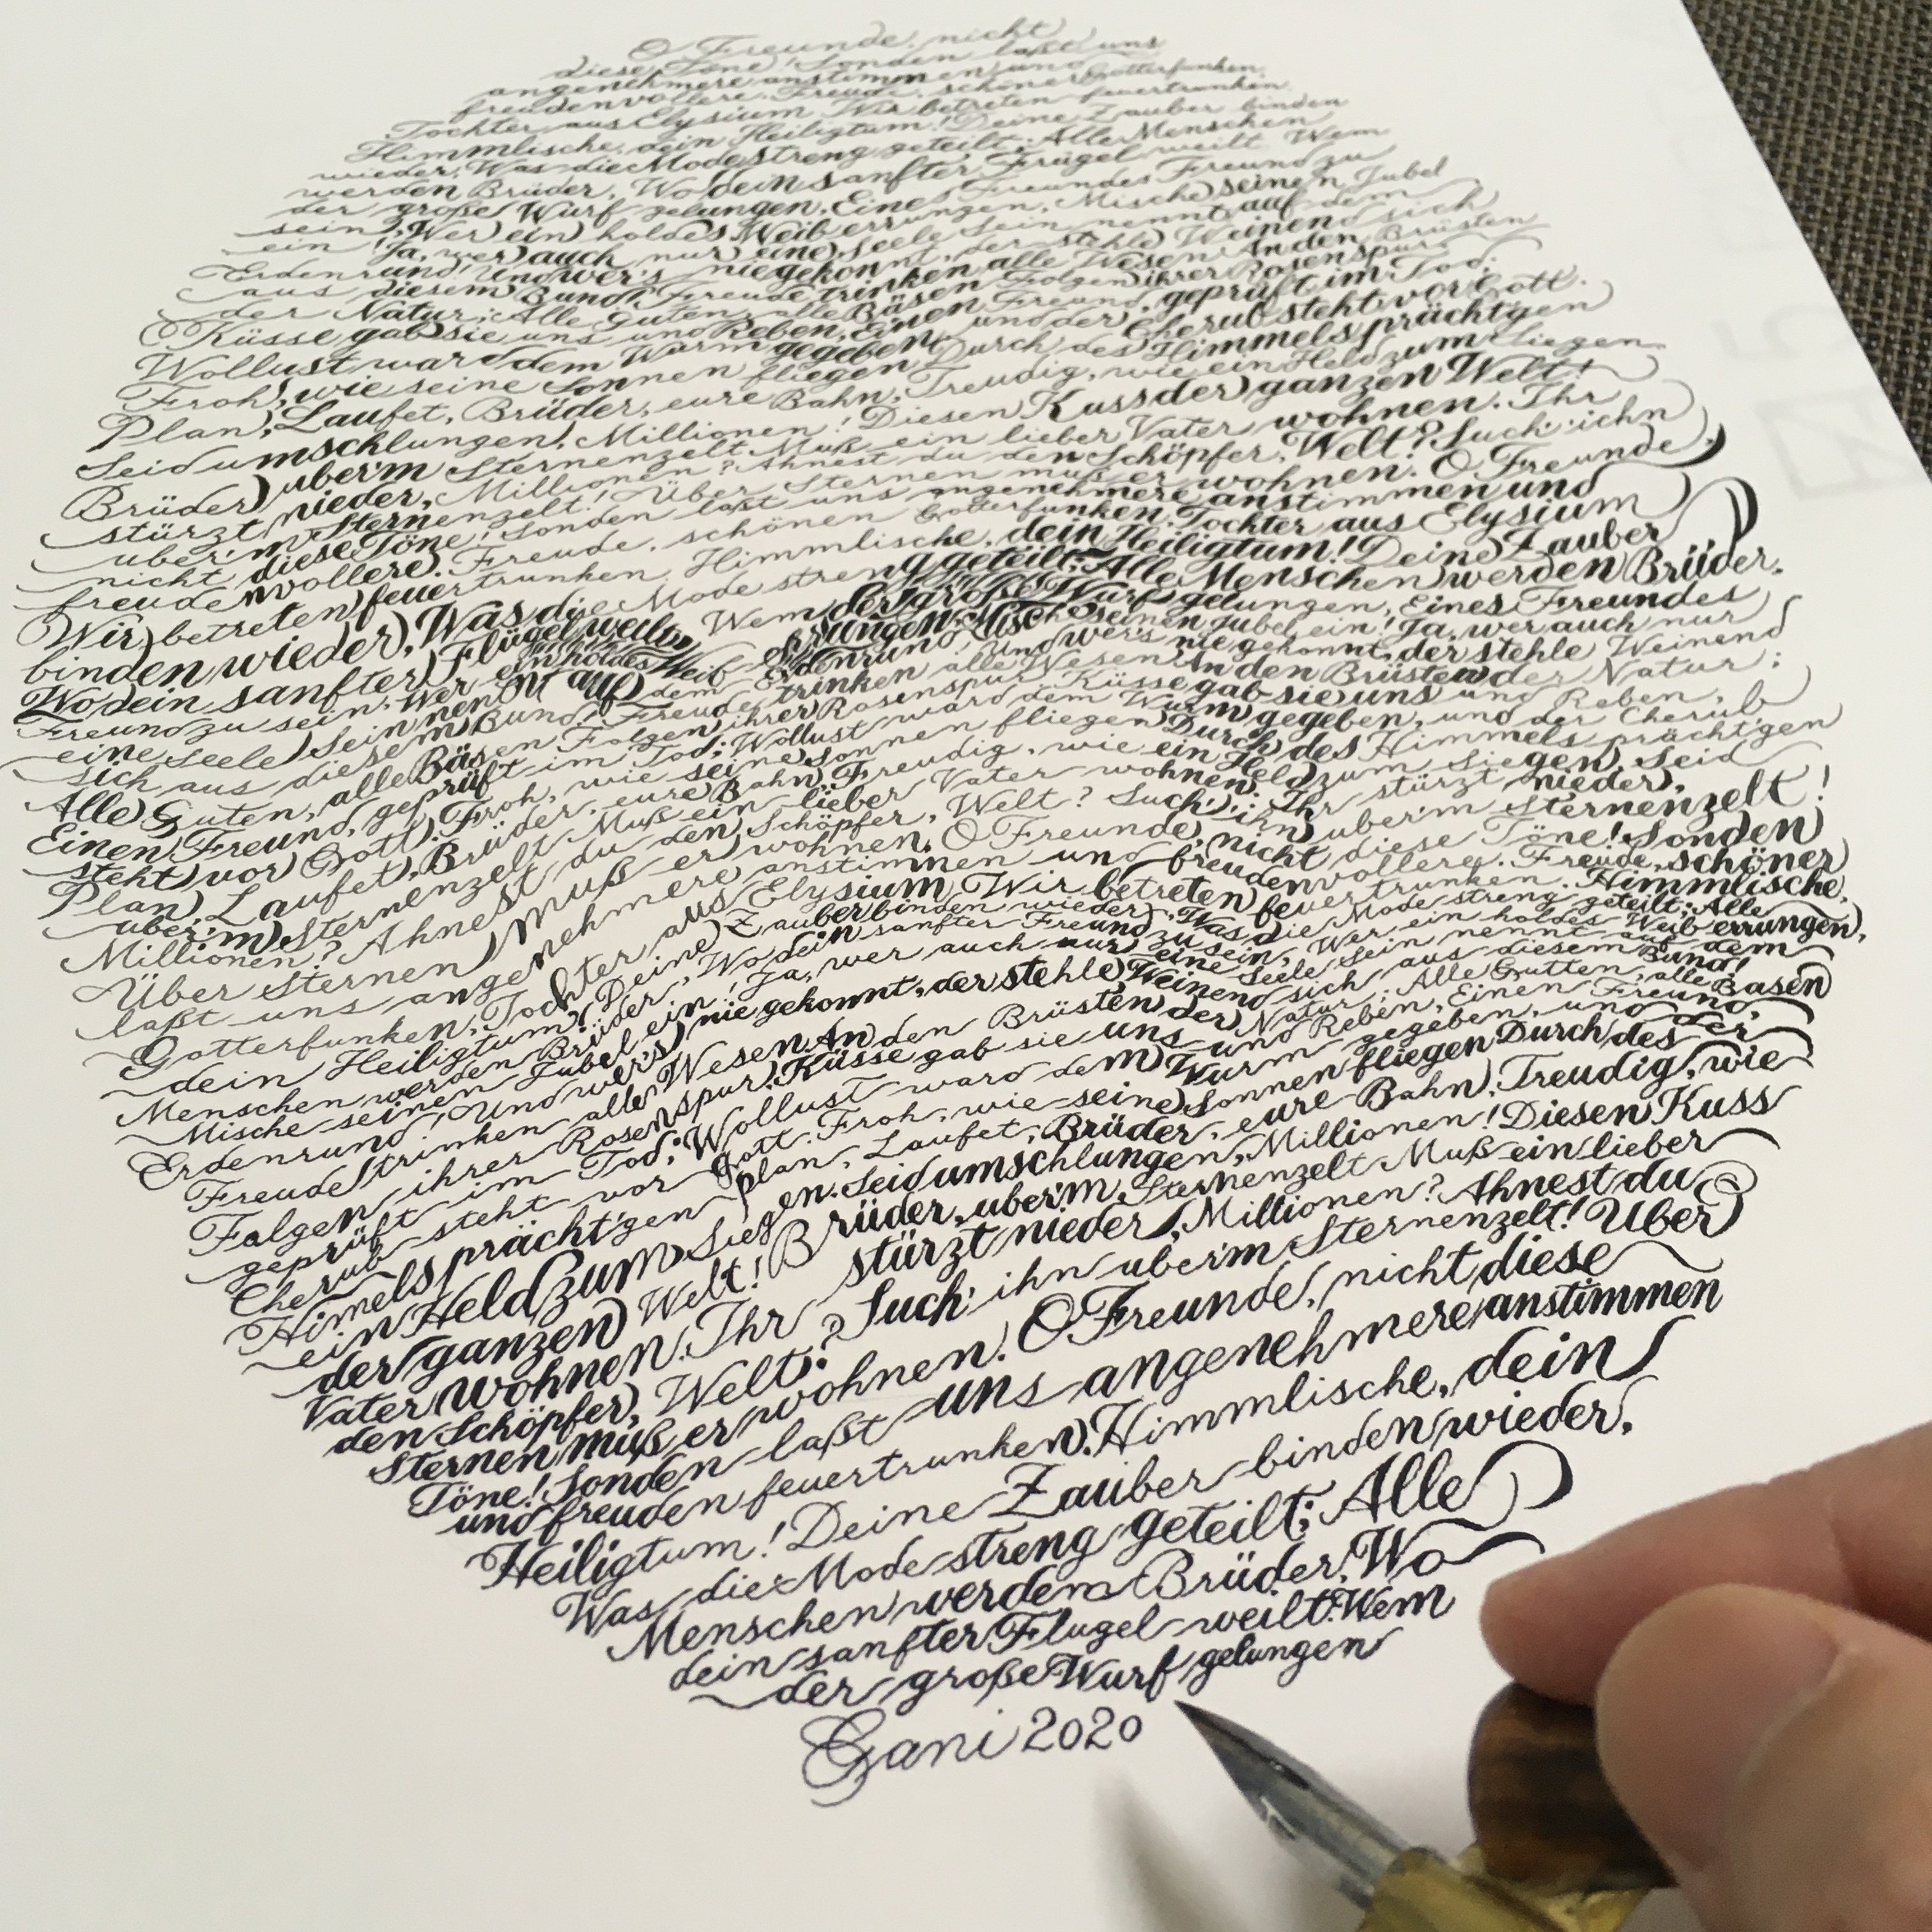 O Freunde, nicht
diese Töne! Sonden laßt uns
angenehmere anstimmen und
freudenvollere. Freude, schöner Gotterfunken,
Tochter aus Elysium Wir betreten feuertrunken,
Himmlische, dein Heiligtum! Deine Zauber binden
wieder, Was die Mode streng geteilt; Alle Menschen
werden Brüder, Wo dein sanfter Frügel weilt. Wem
der große Wurf gelungen, Eines Freundes Freund zu
sein, Wer ein holdes Weib errungen, Mische seinen Jubel
ein! Ja, wer auch nur eine Seele Sein nennt auf dem
Erdenrund! Und wer's nie gekonnt, der stehle Weinend sich
aus diesem Bund! Freude trinken alle Wesen An den Brüsten
der Natur; Alle Guten, alle Bäsen Folgen ihrer Rosenspur.
Küsse gab sie uns und Reben, Einen Freund, geprüft im Tod;
Wollust ward dem Wurm gegeben, und der Cherub steht vor Gott.
Froh, wie seine Sonnen fliegen Durch des Himmels prächtgen
Plan, Laufet, Brüder, eure Bahn, Freudig, wie ein Held zum Siegen.
Seid umschlungen, Millionen! Diesen Kuss der ganzen Welt!
Brüder, uber'm Sternenzelt Muß ein lieber Vater wohnen. Ihr
stürzt nieder, Millionen? Ahnest du den Schöpfer, Welt? Such' ihn
uber'm Sternenzelt! Über Sternen muß er wohnen. O Freunde,
nicht diese Töne! Sonden laßt uns angenehmere anstimmen und
freudenvollere. Freude, schönen Gotterfunken, Tochter aus Elysium
Wir betreten feuertrunken, Himmlische, dein Heiligtum! Deine Zauber
binden wieder, Was die Mode streng geteilt; Alle Menschen werden Brüder,
Wo dein sanfter Flügel weilt. Wem der große Wurf gelungen, Eines Freundes
Freund zu sein, Wer ein holdes Weib errungen, Mische seinen Jubel ein! Ja, wer auch nur
eine Seele Sein nennt auf dem Erdenrund! Und wer's nie gekonnt, der stehle Weinend
sich aus diesem Bund! Freude trinken alle Wesen An den Brüsten der Natur;
Alle Guten, alle Bäsen Folgen ihrer Rosenspur. Küsse gab sie uns und Reben,
Einen Freund, geprüft im Tod; Wollust ward dem Wurm gegeben, und der Cherub
steht vor Gott. Froh, wie seine Sonnen fliegen Durch des Himmels prächt'gen
Plan, Laufet, Brüder, eure Bahn, Freudig, wie ein Held zum Siegen. Seid
uber'm Sternenzelt Muß ein lieber Vater wohnen. Ihr stürzt nieder,
Millionen? Ahnest du den Schöpfer, Welt? Such' ihn uber'm Sternenzelt!
Über Sternen muß er wohnen. O Freunde, nicht diese Töne! Sonden
laßt uns angenehmere anstimmen und freudenvollere. Freude, schöner
Gotterfunken, Tochter aus Elysium Wir betreten feuertrunken. Himmlische,
dein Heiligtum! Deine Zauber binden wieder, Was die Mode streng geteilt; Alle
Menschen werden Brüder, Wo dein sanfter Freund zu sein, Wer ein holdes Weib errungen,
Mische seinen Jubel ein! Ja, wer auch nur eine Seele Sein nennt auf dem
Erdenrund! Und wer's nie gekonnt, der stehle Weinend sich aus diesem Bund!
Freude trinken alle Wesen An den Brüsten der Natur; Alle Gutten, alle Basen
Folgen ihrer Rosenspur. Küsse gab sie uns und Reben, Einen Freund,
geprüft im Tod; Wollust ward dem Wurm gegeben, und der
Cherub steht vor Gott. Froh, wie seine Sonnen fliegen Durch des
Himels prächt'gen plan, Laufet, Brüder, eure Bahn, Freudig, wie
ein Held zum Siegen. Seid umschlungen, Millionen! Diesen Kuss
der ganzen Welt! Brüder, uber'm Sternenzelt Muß ein lieber
Vater wohnen. Ihr stürzt nieder, Millionen? Ahnest du
den Schöpfer, Welt? Such' ihn uber'm Sternenzelt! Über
Sternen muß er wohnen. O Freunde, nicht diese
Töne! Sonden laßt uns angenehmere anstimmen
und freuden feuertrunken. Himmlische, dein
Heiligtum! Deine Zauber binden wieder,
Was die Mode streng geteilt; Alle
Menschen werden Brüder, Wo
dein sanfter Flugel weilt. Wem
der große Wurf gelungen
Gani 2020